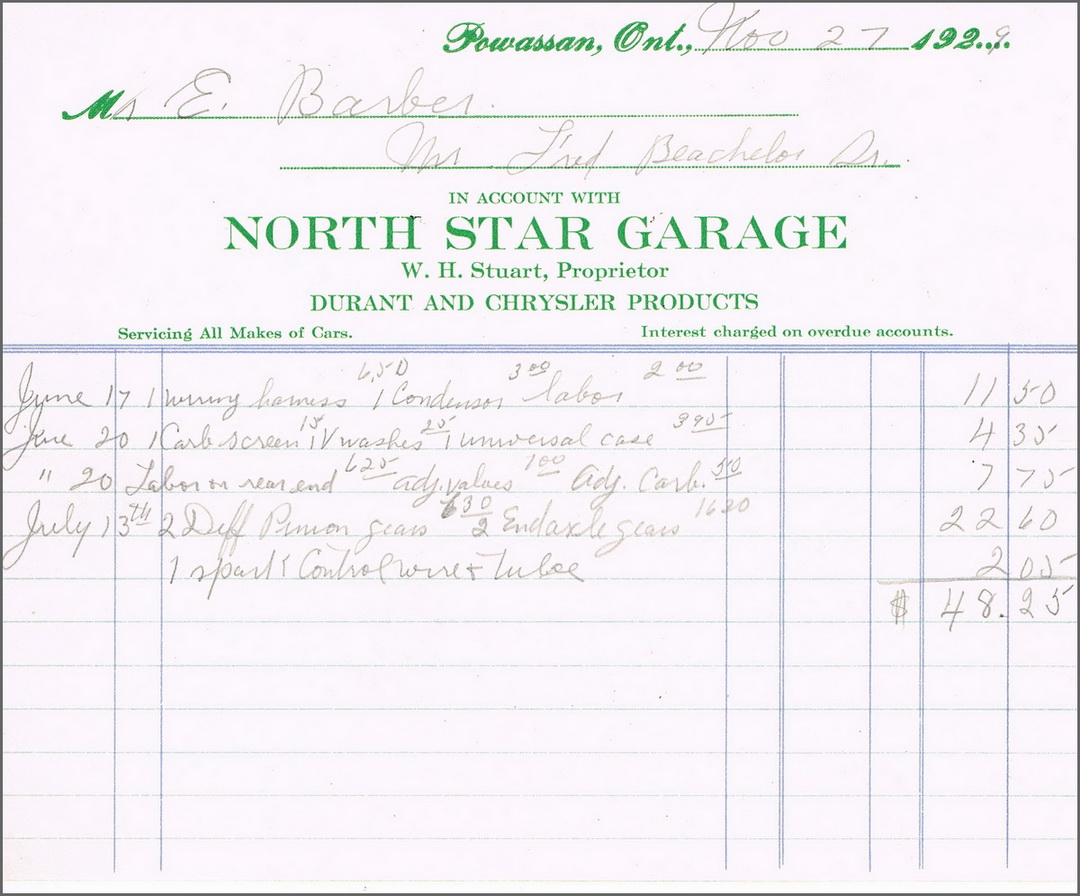 Powassan, Ont., Nov 27 1929
Mr E. Barber.
Mr Fred Beachelor Sr.
IN ACCOUNT WITH
NORTH STAR GARAGE
W. H. Stuart, Proprietor
DURANT AND CHRYSLER PRODUCTS
Servicing All Makes of Cars. Interest charged on overdue accounts.
6,50 3 00 2 00
June 17 1 wiring harness 1 Condensor labor 11 50
June 20 1 Carb screen 15 1 V washes 25 1 universal case 3 95 4 35
" 20 Labor on rear end 6 25 adj. valves 1 00 adj. Carb. 50 7 75
July 13th 2 Diff Pinion gears 6 30 2 End axle gears 16 20 22 60
1 spark Control wire + tube 2 05
$ 48.25